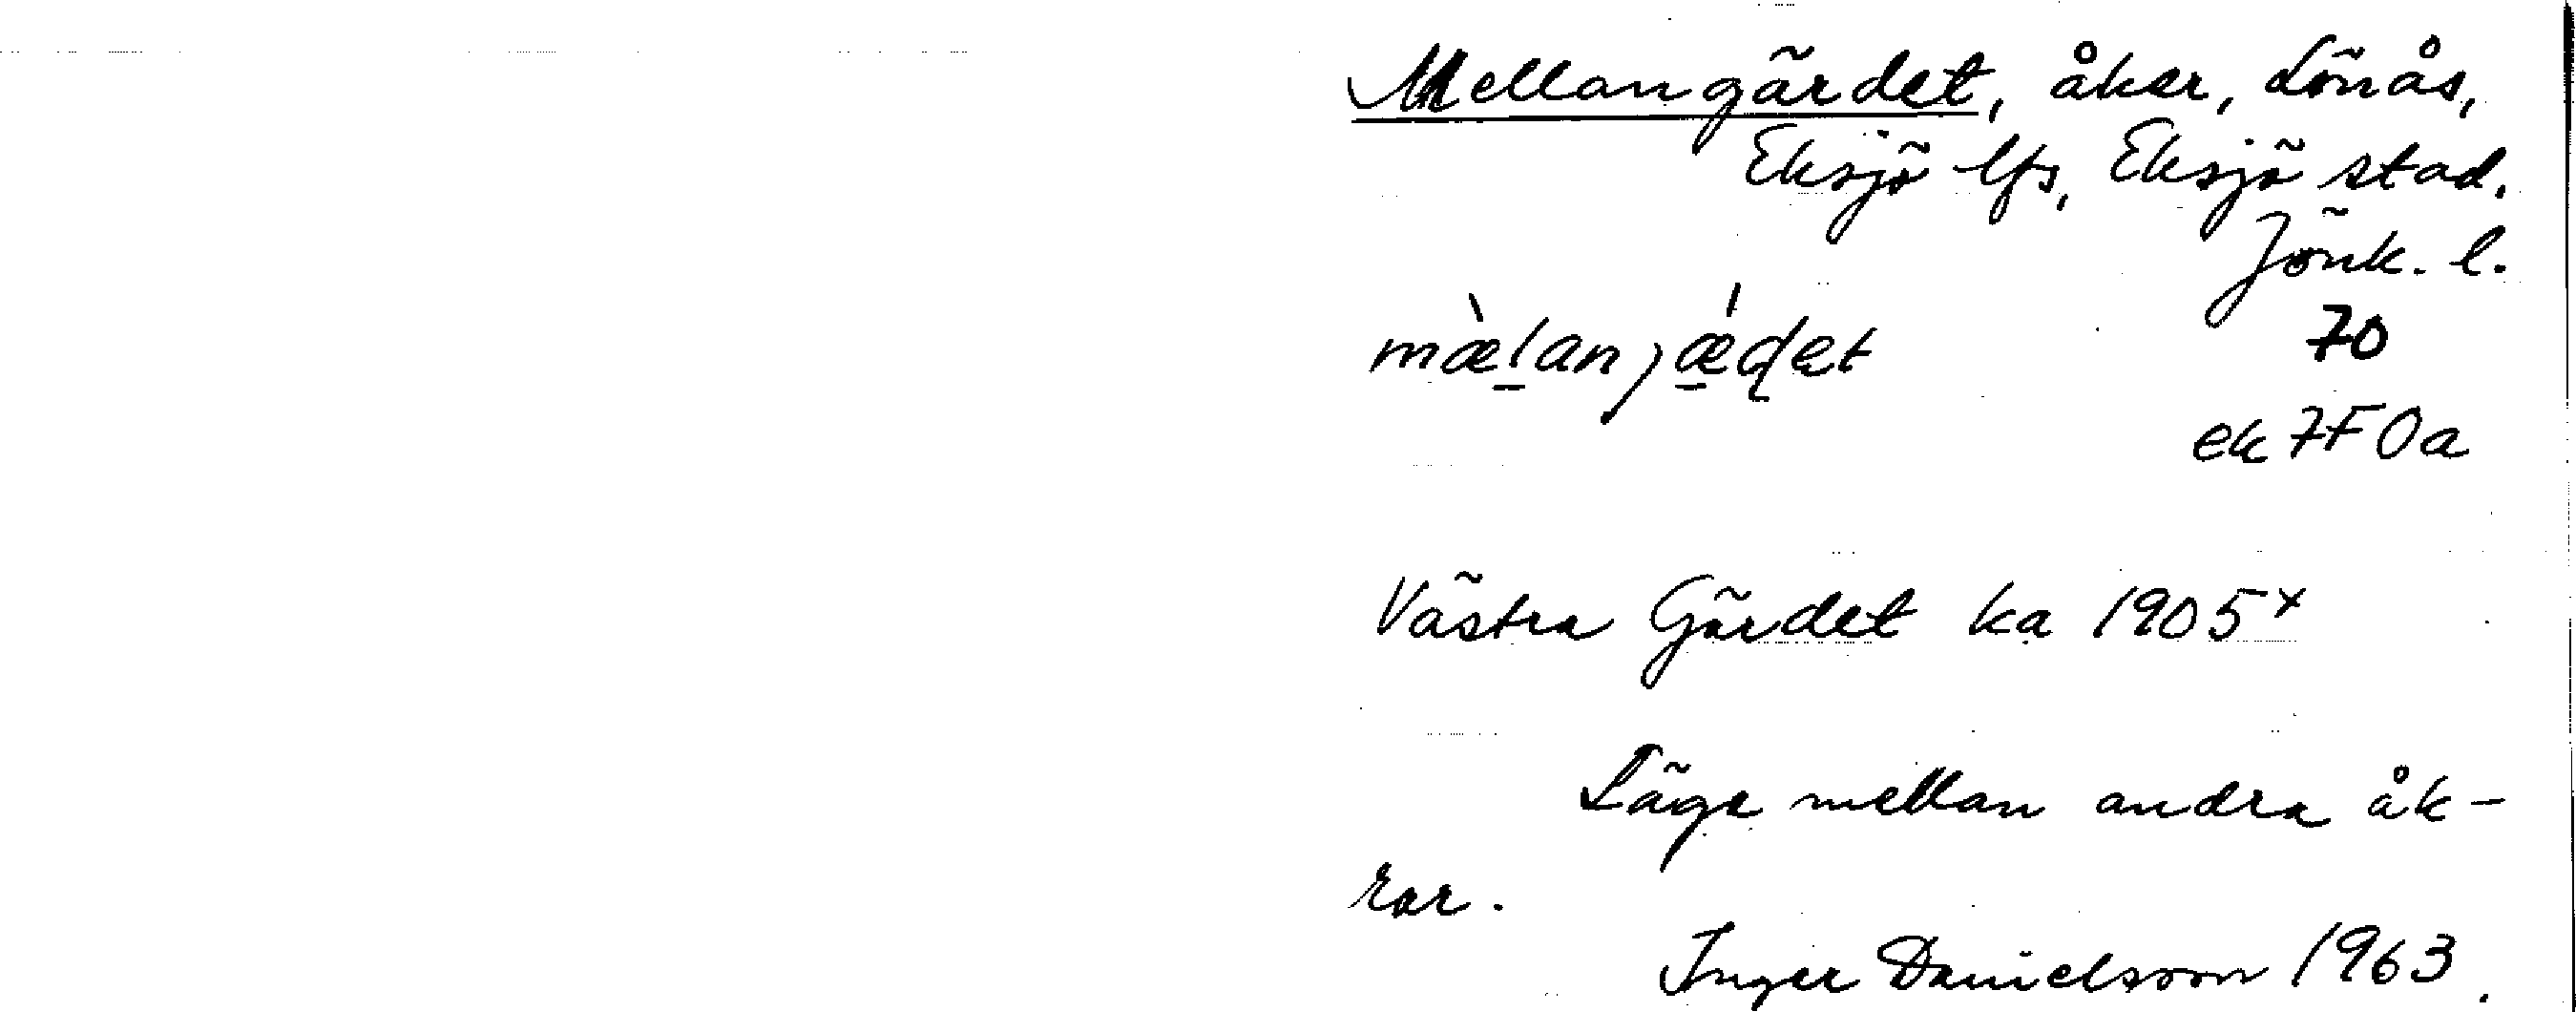 Mellangärdet, åker, Lönås,
Eksjö lfs, Eksjö stad.
Jönk. l.
70
ek 7F0a
Västra Gärdet ka 1905x
Läge mellan andra åk-
rar.
Inger Danielsson 1963.